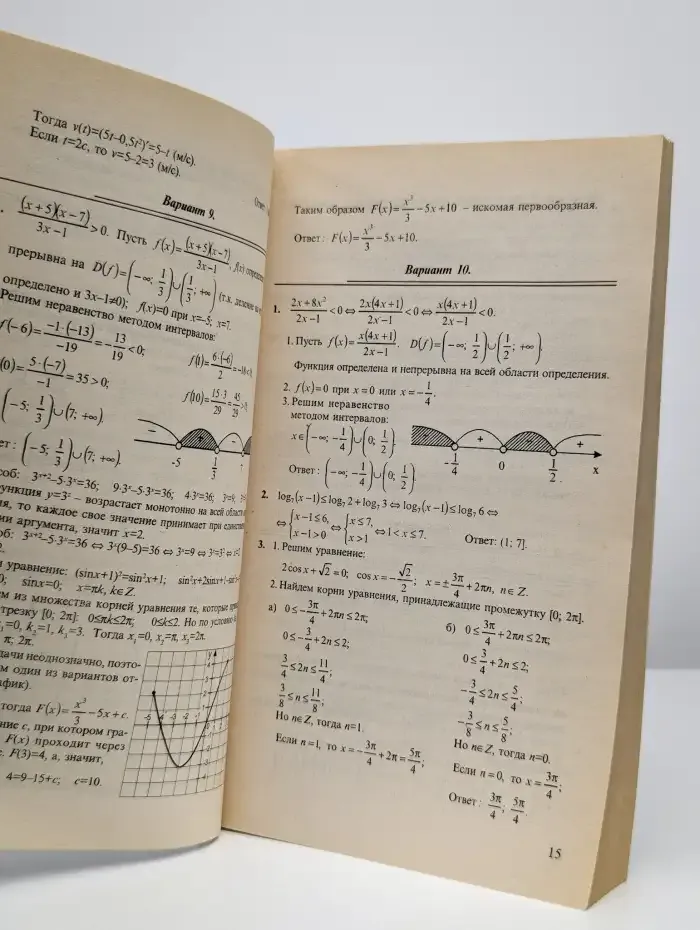 Тогда v(t)=(5t–0,5t²)'=5–t (м/с).
Если t=2с, то v=5–2=3 (м/с).
Вариант 9.
(x+5)(x−7)/(3x−1) > 0. Пусть f(x)=(x+5)(x−7)/(3x−1), f(x)
прерывна на D(f)=(−∞; 1/3)∪(1/3; +∞) (т.к. деление на
определено и 3x–1≠0); f(x)=0 при x=–5; x=7.
Решим неравенство методом интервалов:
f(−6)=−1·(−13)/−19=−13/19<0; f(1)=6·(−6)/2=−18<0
(0)=5·(−7)/−1=35>0; f(10)=15·3/29=45/29>
(−5; 1/3)∪(7; +∞).
− + −
-5 1/3
ет: (−5; 1/3)∪(7; +∞).
соб: 3ˣ⁺²–5·3ˣ=36; 9·3ˣ–5·3ˣ=36; 4·3ˣ=36; 3ˣ=9;
ункция y=3ˣ – возрастает монотонно на всей области
ия, то каждое свое значение принимает при
ии аргумента, значит x=2.
об: 3ˣ⁺²–5·3ˣ=36 ⇔ 3ˣ(9–5)=36 ⇔ 3ˣ=9 ⇔ 3ˣ=3² ⇔
2.
и уравнение: (sinx+1)²=sin²x+1; sin²x+2sinx+1–sin²
0; sinx=0; x=πk, k∈Z.
ем из множества корней уравнения те, которые
трезку [0; 2π]: 0≤πk≤2π; 0≤k≤2. Но по условию
₁=0, k₂=1, k₃=3. Тогда x₁=0, x₂=π, x₃=2π.
π; 2π.
дачи неоднозначно, поэто-
м один из вариантов от-
афик).
тогда F(x)=x³/3−5x+c.
ние c, при котором гра-
F(x) проходит через
е. F(3)=4, а, значит,
4=9–15+c; c=10.
Таким образом F(x)=x³/3−5x+10 – искомая первообразная.
Ответ: F(x)=x³/3−5x+10.
Вариант 10.
1. (2x+8x²)/(2x−1)<0 ⇔ 2x(4x+1)/(2x−1)<0 ⇔ x(4x+1)/(2x−1)<0.
1. Пусть f(x)=x(4x+1)/(2x−1). D(f)=(−∞; 1/2)∪(1/2; +∞).
Функция определена и непрерывна на всей области определения.
2. f(x)=0 при x=0 или x=−1/4.
3. Решим неравенство
методом интервалов:
x∈(−∞;−1/4)∪(0; 1/2).
− + − +
-1/4 0 1/2 x
Ответ: (−∞;−1/4)∪(0; 1/2).
2. log₇(x−1)≤log₇2+log₇3 ⇔ log₇(x−1)≤log₇6 ⇔
⇔{x−1≤6, x−1>0 ⇔{x≤7, x>1 ⇔1<x≤7. Ответ: (1; 7].
3. 1. Решим уравнение:
2cosx+√2=0; cosx=−√2/2; x=±3π/4+2πn, n∈Z.
2. Найдем корни уравнения, принадлежащие промежутку [0; 2π].
а) 0≤−3π/4+2πn≤2π;
0≤−3/4+2n≤2;
3/4≤2n≤11/4;
3/8≤n≤11/8;
Но n∈Z, тогда n=1.
Если n=1, то x=−3π/4+2π=5π/4;
б) 0≤3π/4+2πn≤2π;
0≤3/4+2n≤2;
−3/4≤2n≤5/4;
−3/8≤n≤5/8;
Но n∈Z, тогда n=0.
Если n=0, то x=3π/4;
Ответ: 3π/4; 5π/4.
15